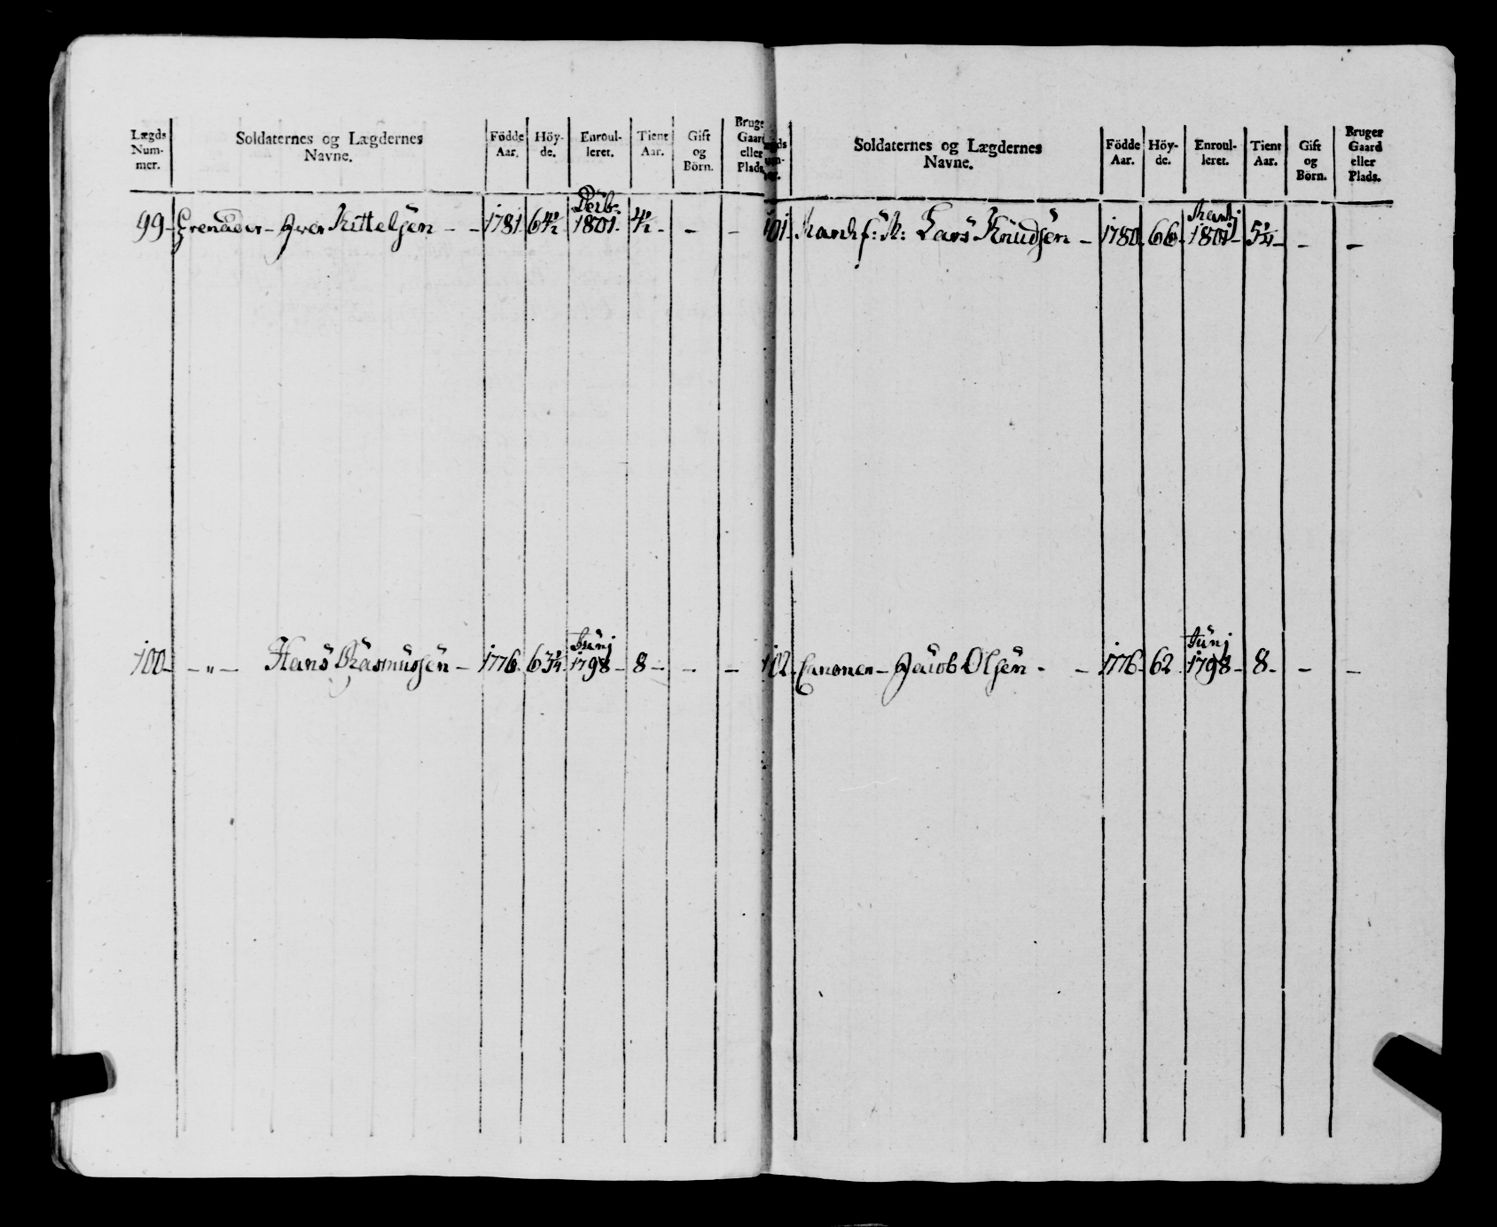 Lægds Num- mer. Soldaternes og Lægdernes Navne. Födde Aar. Höy- de. Enroul- leret. Tient Aar. Gift og Börn. Bruger Gaard eller Plads.
99 Grenader - Iver Kittelsen - - 1781. 64½ Decbr. 1801. 4½ - - -
100 - „ - Hans Rasmussen - 1776. 63¾ Junj 1798 - 8 - - -
Soldaternes og Lægdernes Navne. Födde Aar. Höy- de. Enroul- leret. Tient Aar. Gift og Börn. Bruger Gaard eller Plads.
101 Lars Knudsen - 1780. 66 1801 - - -
102 Canoneer - Jacob Olsen - - 1776. 62 Junj 1798 - 8 - - -